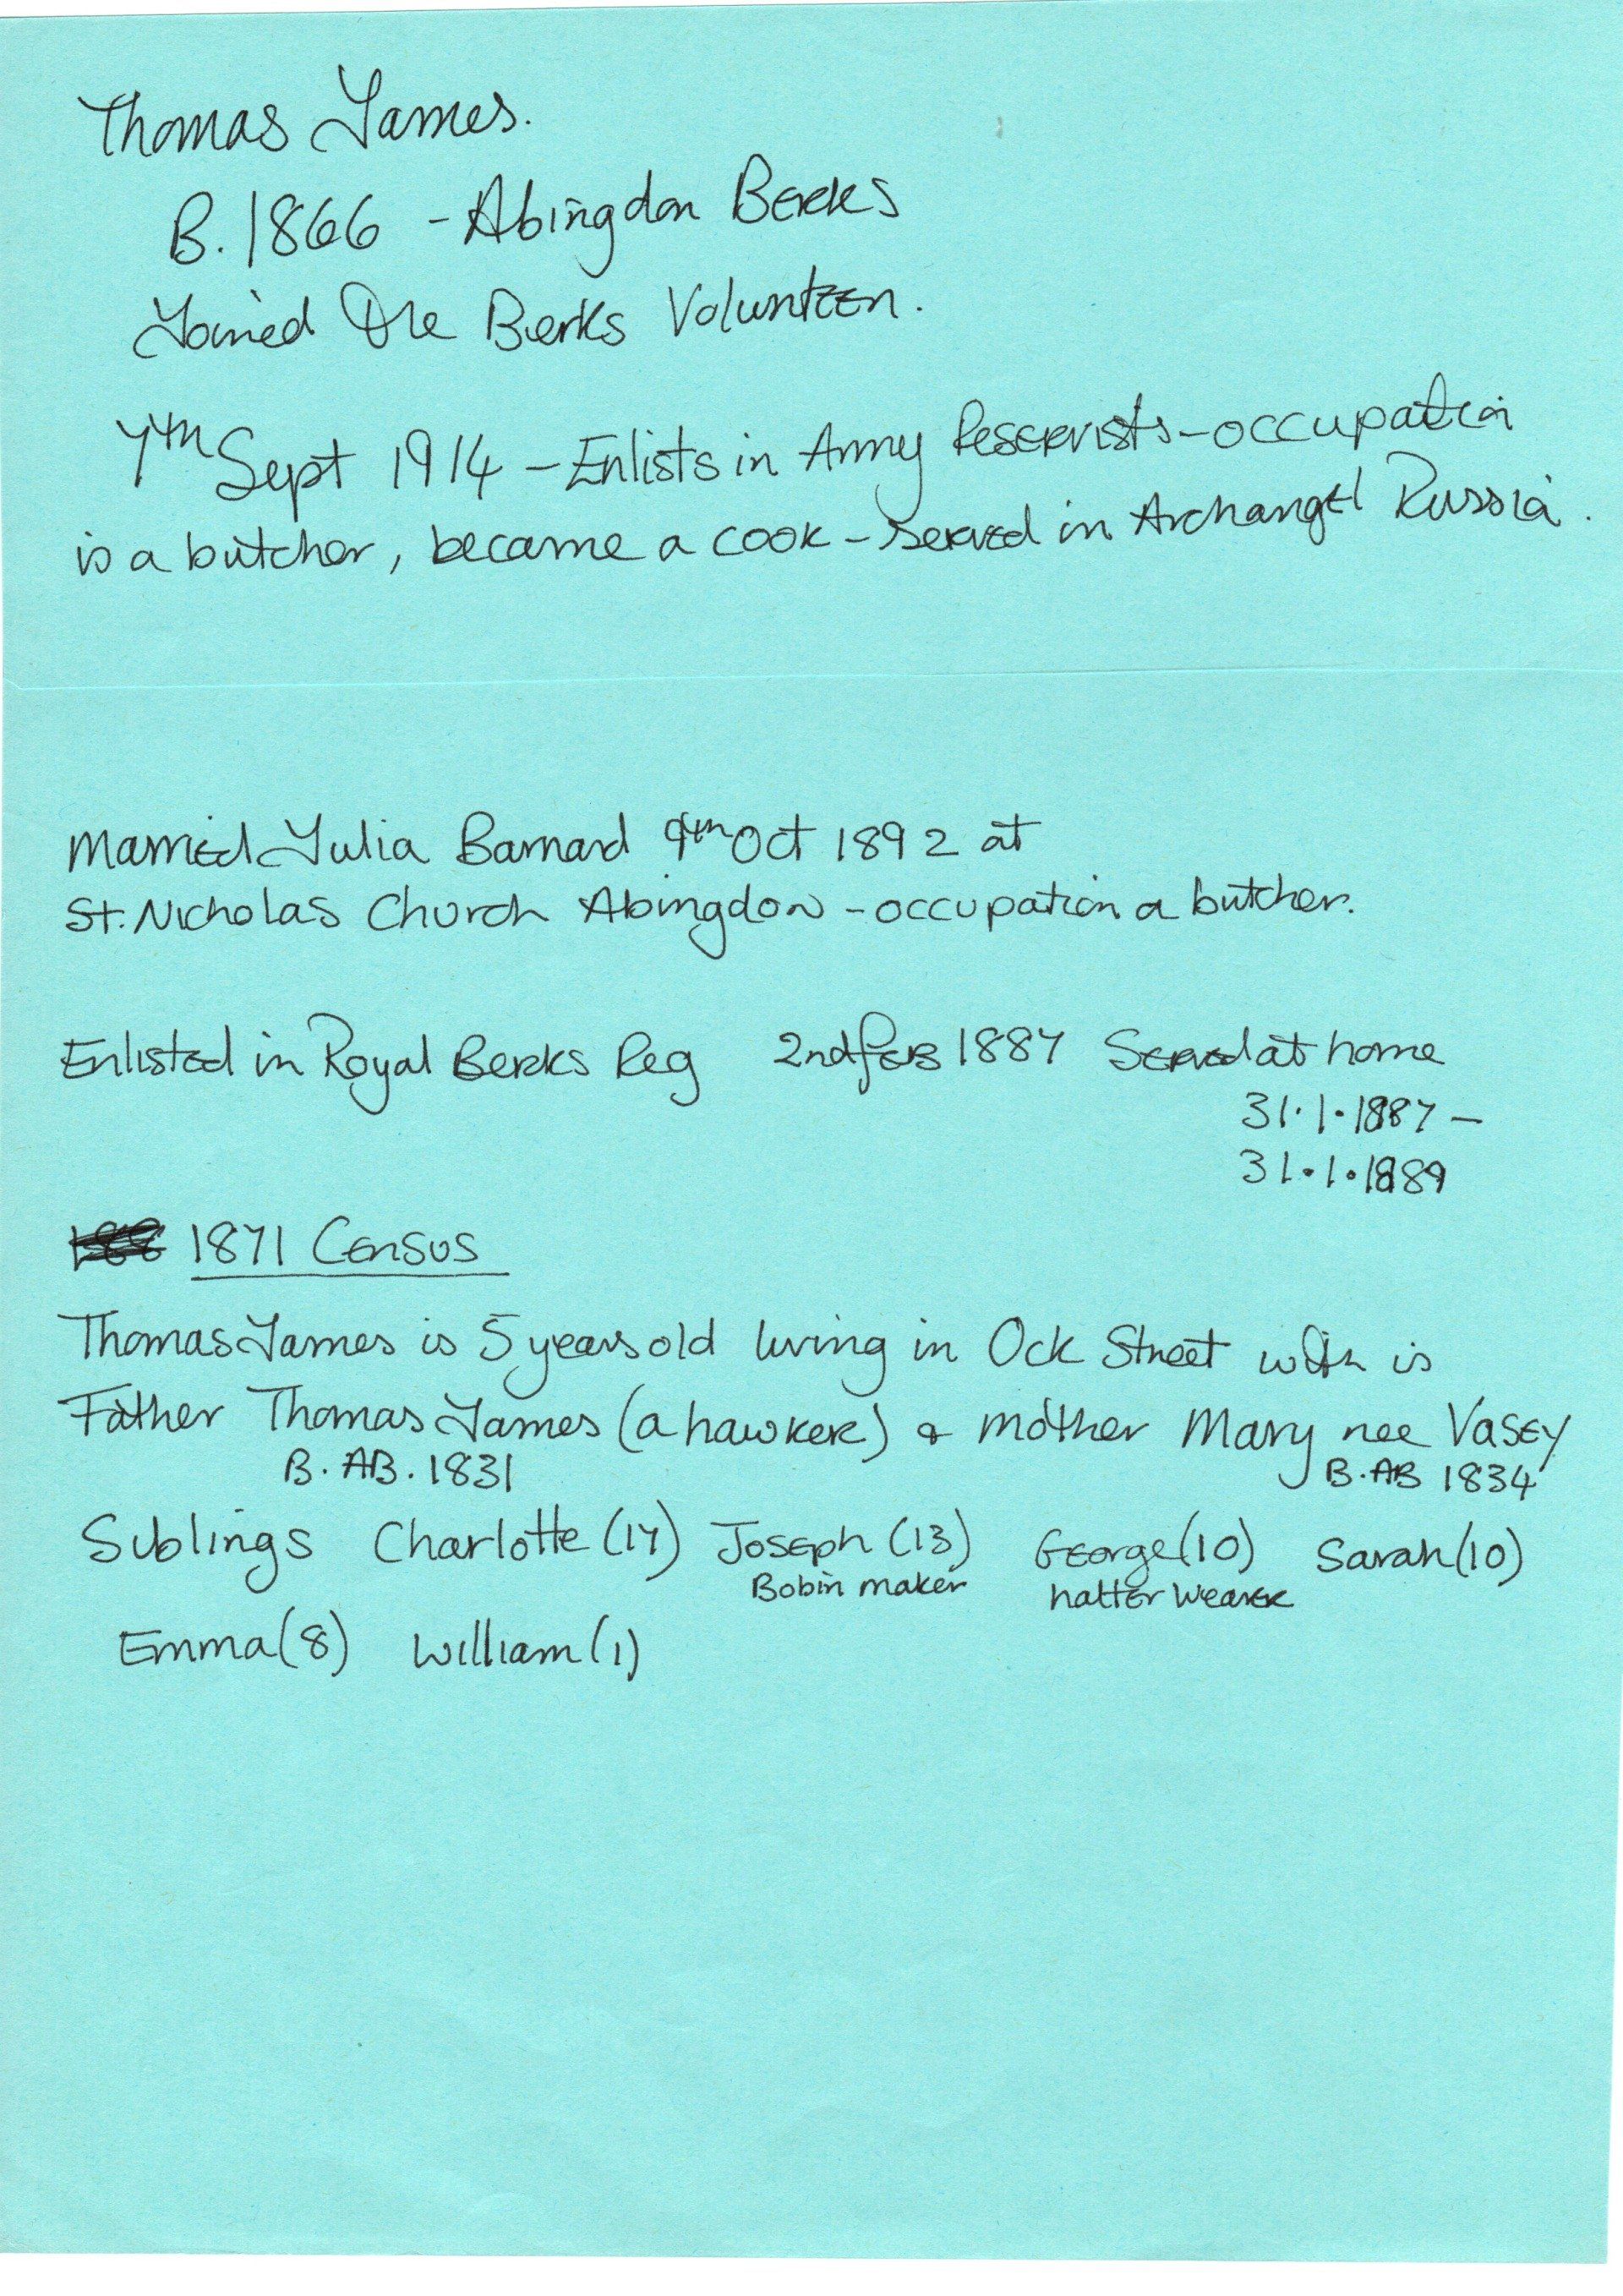 Thomas James.
B. 1866 - Abingdon Berks
Joined the Berks Volunteer.
7th Sept 1914 - Enlists in Army Reservists - occupation
is a butcher, became a cook - served in Archangel Russia.
Married Julia Barnard 9th Oct 1892 at
St. Nicholas Church Abingdon - occupation a butcher.
Enlisted in Royal Berks Reg 2nd Feb 1887 Served at home
31.1.1887 -
31.1.1889
1871 Census
Thomas James is 5 years old living in Ock Street with is
Father Thomas James (a hawker) & mother Mary nee Vasey
B. AB. 1831 B. AB 1834
Siblings Charlotte (17) Joseph (13) George (10) Sarah (10)
Bobin maker hatter weaver
Emma (8) William (1)